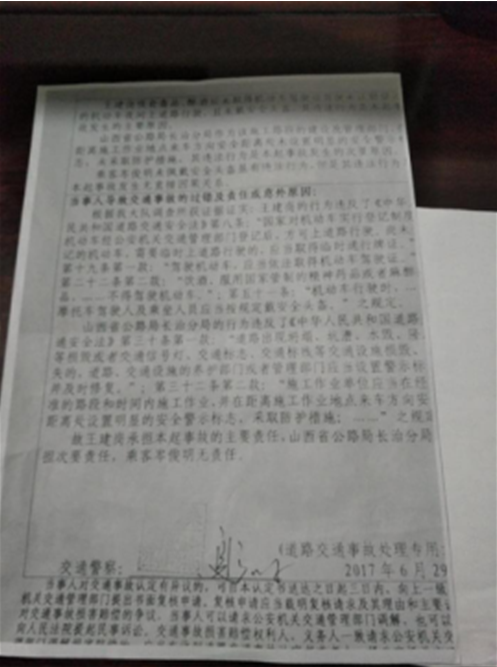 的机动车夜间上道路行驶，且未戴安全头盔
故发生的主要原因。
山西省公路局长治分局作为该施工路段的建设及管理部门，
距离施工作业地点来车方向安全距离处未设置明显的安全警示
志，未采取防护措施，其违法行为是本起事故发生的次要原因。
岑俊明未佩戴安全头盔
本起事故发生无直接因果关系。
当事人导致交通事故的过错及责任或意外原因：
根据我大队调查所获证据证实：王建岗的行为违反了《中华
民共和国道路交通安全法》第八条：“国家对机动车实行登记制度
机动车经公安机关交通管理部门登记后，方可上道路行驶。尚未
记的机动车，需要临时上道路行驶的，应当取得临时通行牌证。”
第十九条第一款：“驾驶机动车，应当依法取得机动车驾驶证。
第二十二条第二款：“饮酒、服用国家管制的精神药品或者麻醉
品，……不得驾驶机动车。”；第五十一条：“机动车行驶时，…
摩托车驾驶人及乘坐人员应当按规定戴安全头盔。”之规定。
山西省公路局长治分局的行为违反了《中华人民共和国道路
通安全法》第三十条第一款：“道路出现坍塌、坑漕、水毁、隆
等损毁或者交通信号灯、交通标志、交通标线等交通设施损毁、
失的，道路、交通设施的养护部门或者管理部门应当设置警示标
并及时修复。”；第三十二条第二款：“施工作业单位应当在经
准的路段和时间内施工作业，并在距离施工作业地点来车方向安
距离处设置明显的安全警示标志，采取防护措施；……”之规定
故王建岗承担本起事故的主要责任，山西省公路局长治分局
担次要责任，乘客岑俊明无责任。
（道路交通事故处理专用
交通警察：
2017 年 6 月 29
当事人对交通事故认定有异议的，可自本认定书送达之日起三日内，向上一级
机关交通管理部门提出书面复核申请。复核申请应当载明复核请求及其理由和主要证
对交通事故损害赔偿的争议，当事人可以请求公安机关交通管理部门调解，也可以
向人民法院提起民事诉讼。交通事故损害赔偿权利人、义务人一致请求公安机关交